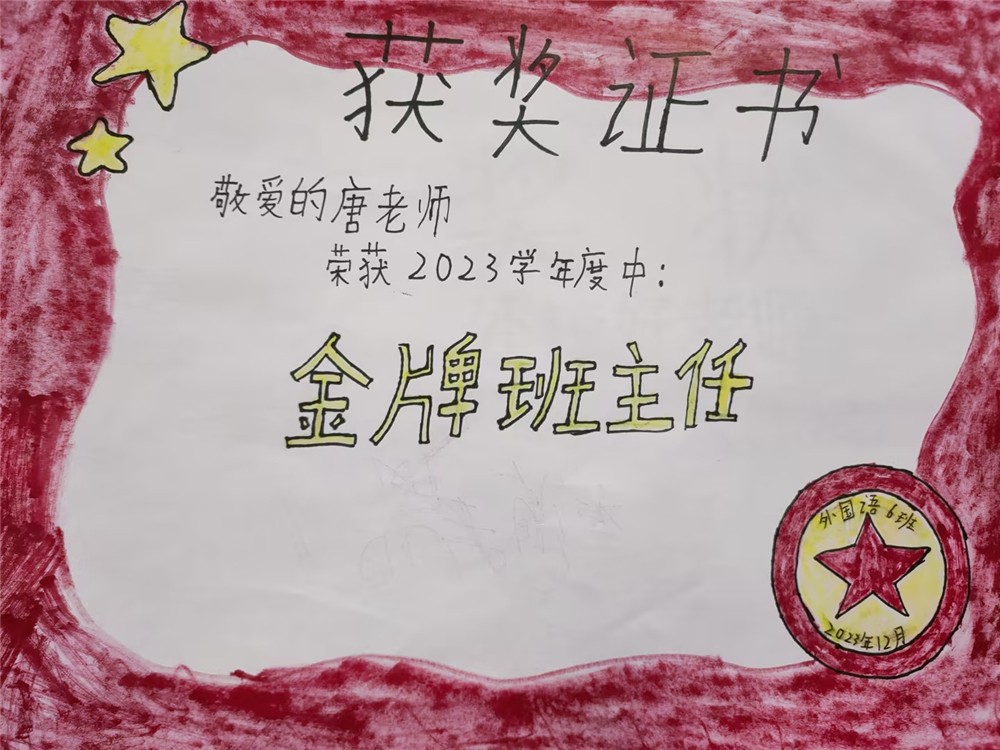 获奖证书
敬爱的唐老师
荣获2023学年度中:
金牌班主任
外国语6班
2023年12月